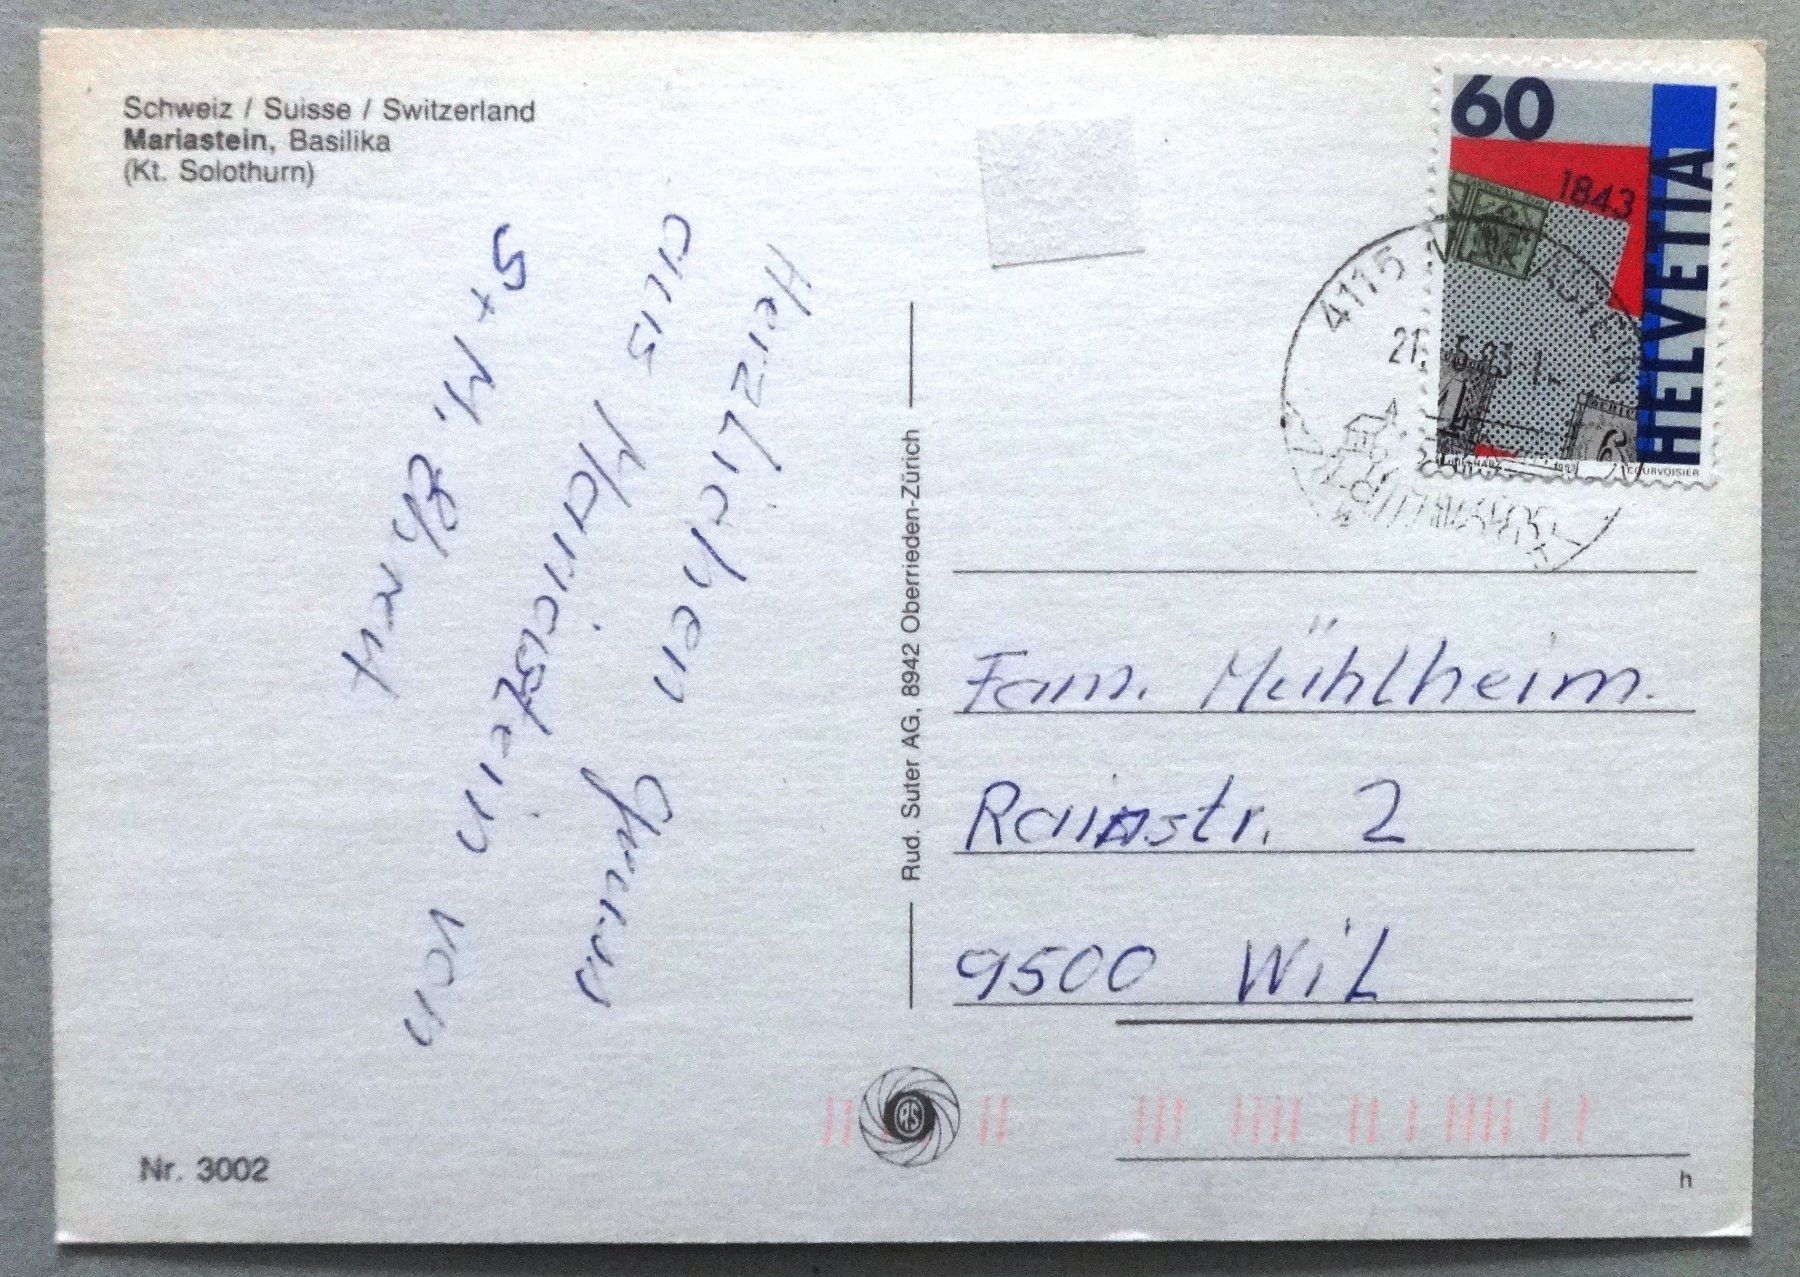 Schweiz / Suisse / Switzerland
Mariastein, Basilika
(Kt. Solothurn)
Herzlichen Gruss
aus Mariastein von
S + M.
Nr. 3002
Rud. Suter AG, 8942 Oberrieden-Zürich
60
1843
HELVETIA
COURVOISIER
4115
21.
Fam. Mühlheim.
Rainstr. 2
9500 Wil
RS
h